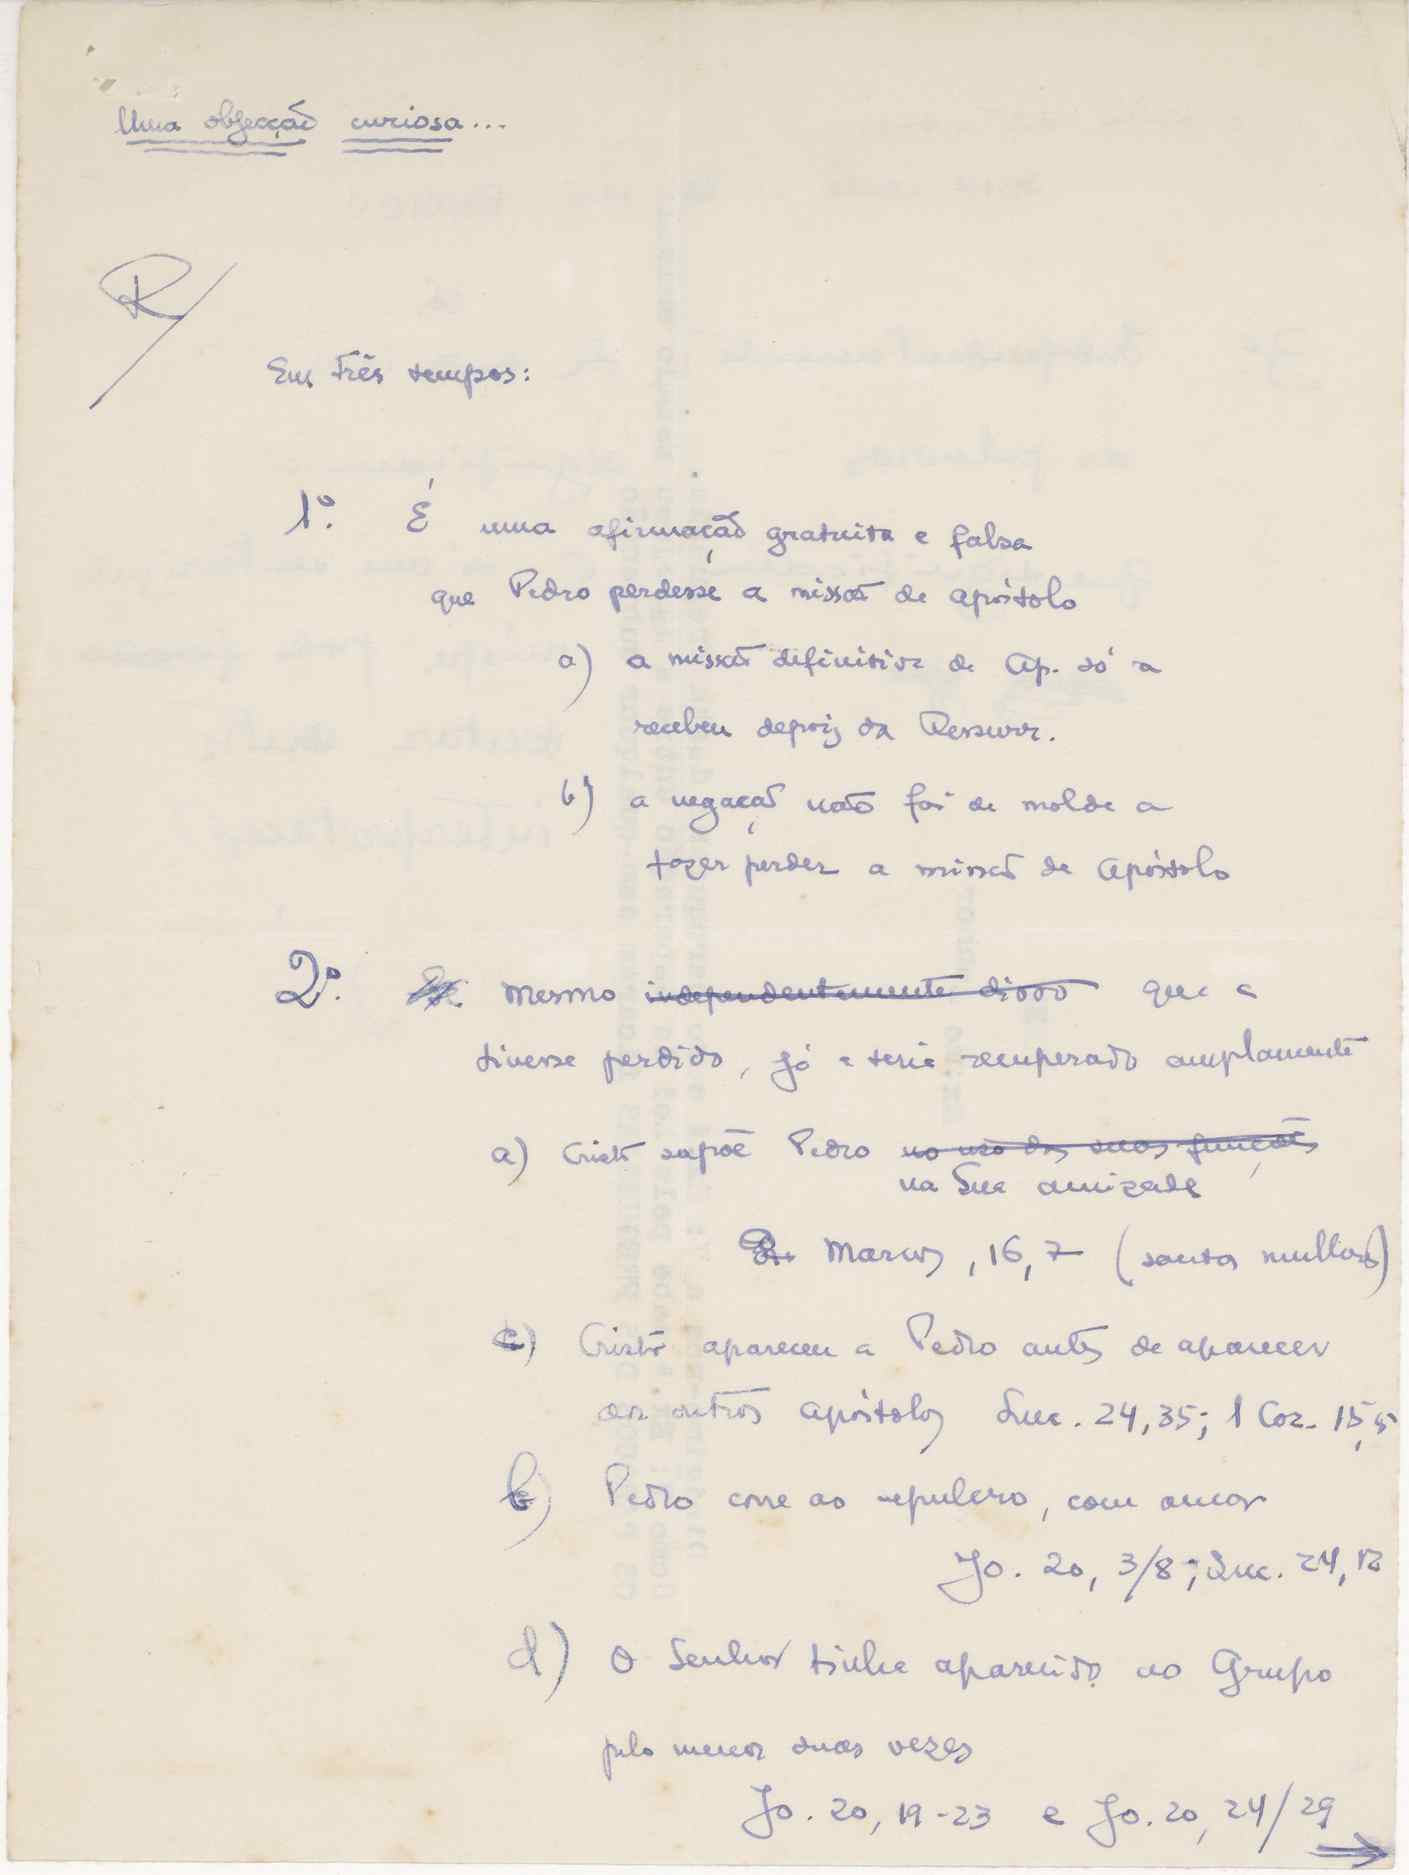 Uma objecção curiosa...
R/
Em três tempos:
1º. É uma afirmação gratuita e falsa
que Pedro perdesse a missão de apóstolo
a) a missão definitiva de Ap. só a
recebeu depois da Ressurr.
b) a negação não foi de molde a
fazer perder a missão de Apóstolo
2º. Mesmo independentemente disso que a
tivesse perdido, já a teria recuperado amplamente
a) Cristo supõe Pedro no uso das suas funções
na Sua amizade
Marcos, 16, 7 (santas mulheres)
c) Cristo apareceu a Pedro antes de aparecer
aos outros Apóstolos Luc. 24, 35; 1 Cor. 15, 5
b) Pedro corre ao sepulcro, com amor
Jo. 20, 3/8; Luc. 24, 12
d) O Senhor tinha aparecido ao Grupo
pelo menos duas vezes
Jo. 20, 19-23 e Jo. 20, 24/29
→